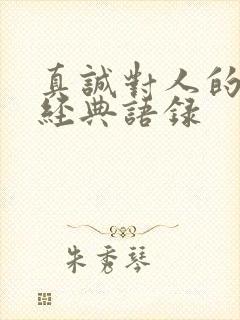 真誠對人的
經典語录
朱秀琴